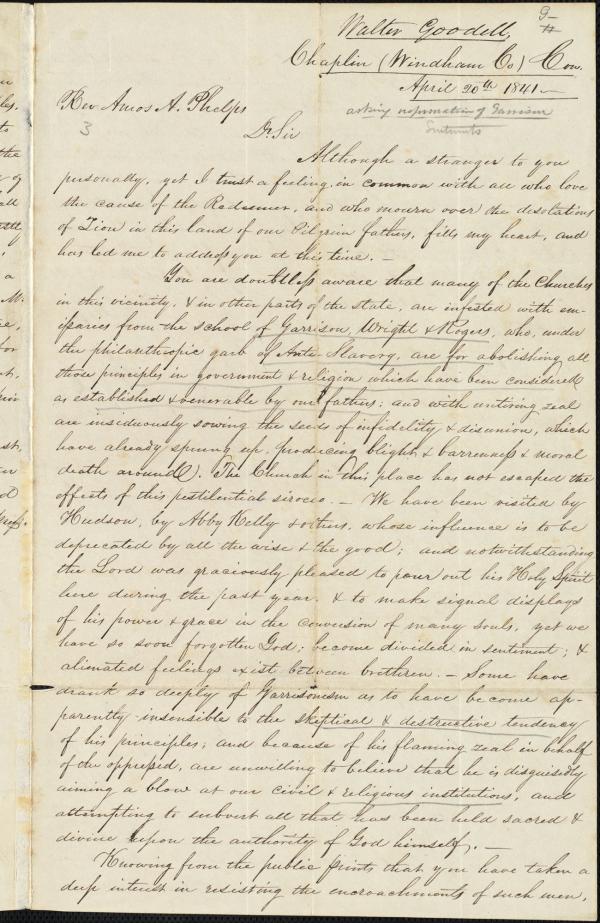 9-
11
Walter Goodell,
Chaplin (Windham Co) Con.
April 20th 1841 —
asking information of Garrison
Sentiments
Rev Amos A. Phelps
3
Dr. Sir
Although a stranger to you
personally, yet I trust a feeling, in common with all who love
the cause of the Redeemer, and who mourn over the desolations
of Zion in this land of our Pilgrim fathers, fills my heart, and
has led me to address you at this time. —
You are doubtless aware that many of the Churches
in this vicinity, & in other parts of the state, are infested with em-
issaries from the School of Garrison, Wright & Rogers, who, under
the philanthropic garb of Anti-Slavery, are for abolishing all
those principles in government & religion which have been considered
as established & venerable by our fathers; and with untiring zeal
are insiduously sowing the seeds of infidelity & disunion, which
have already sprung up, producing blight & barrenness & moral
death around. The Church in this place has not escaped the
effects of this pestilential sirocco. — We have been visited by
Hudson, by Abby Kelly & others, whose influence is to be
deprecated by all the wise & the good; and notwithstanding
the Lord was graciously pleased to pour out his Holy Spirit
here during the past year, & to make signal displays
of his power & grace in the conversion of many souls, yet we
have so soon forgotten God; become divided in sentiment; &
alienated feelings exist between brethren. — Some have
drank so deeply of Garrisonism as to have become ap-
parently insensible to the skeptical & destructive tendency
of his principles; and because of his flaming zeal in behalf
of the oppressed, are unwilling to believe that he is disguisedly
aiming a blow at our civil & religious institutions, and
attempting to subvert all that has been held sacred &
divine upon the authority of God himself. —
Knowing from the public prints that you have taken a
deep interest in resisting the encroachments of such men,